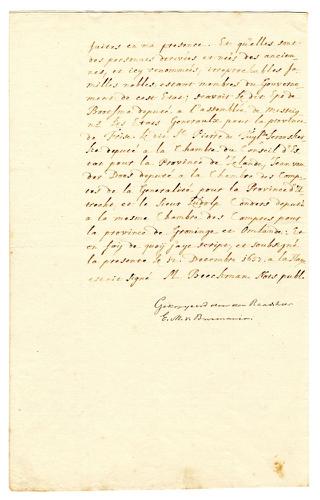 faites en ma presence... Et qu'elles sont
des personnes
nes, et icy renommées, irreprochables fa-
milles nobles, estant membres du Gouverne-
ment de cest Estat; scavoir le Sr
deputé a l'assemblée de Messeig-
nrs les Estats Generaulx pour la province
de Frise, le dit Sr Pierre de
deputé a la Chambre du Conseil d'Es-
tat pour la Province de Zelande, Jean van
der Does deputé a la Chambre des Comp-
tes de la Generalité pour la Province d'U-
trecht et le Sieur Conders deputé
a la mesme Chambre des Comptes pour
la province de Groninge et Omlande; Et
en foy de quoy j'aye escript, et soubsigné
la presente le Decembre a la Haye
estoit signé M. Beeckman Nots publ

Gekopyeerd van den
E. M. v. Burmania